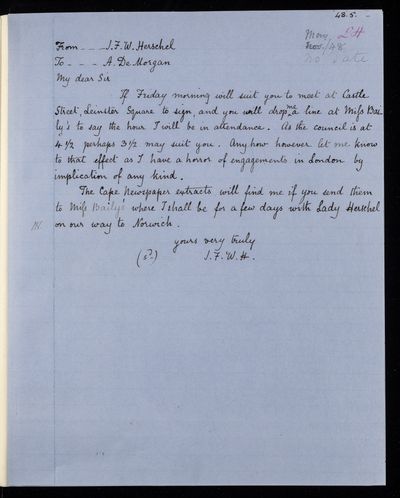 48.5.
From - - - J.F.W. Herschel
May, LH
Nov./48
no date
To - - - A. De Morgan
My dear Sir
If Friday morning will suit you to meet at Castle
Street, Leinster Square to sign, and you will drop me a line at Miss Bai
ly's to say the hour I will be in attendance. As the council is at
4 1/2 perhaps 3 1/2 may suit you. Any how however let me know
to that effect as I have a horror of engagements in London by
implication of any kind.
The Cape Newspaper extracts will find me if you send them
to Miss Bailys' where I shall be for a few days with Lady Herschel
on our way to Norwich.
yours very truly
(s.) J.F.W.H.